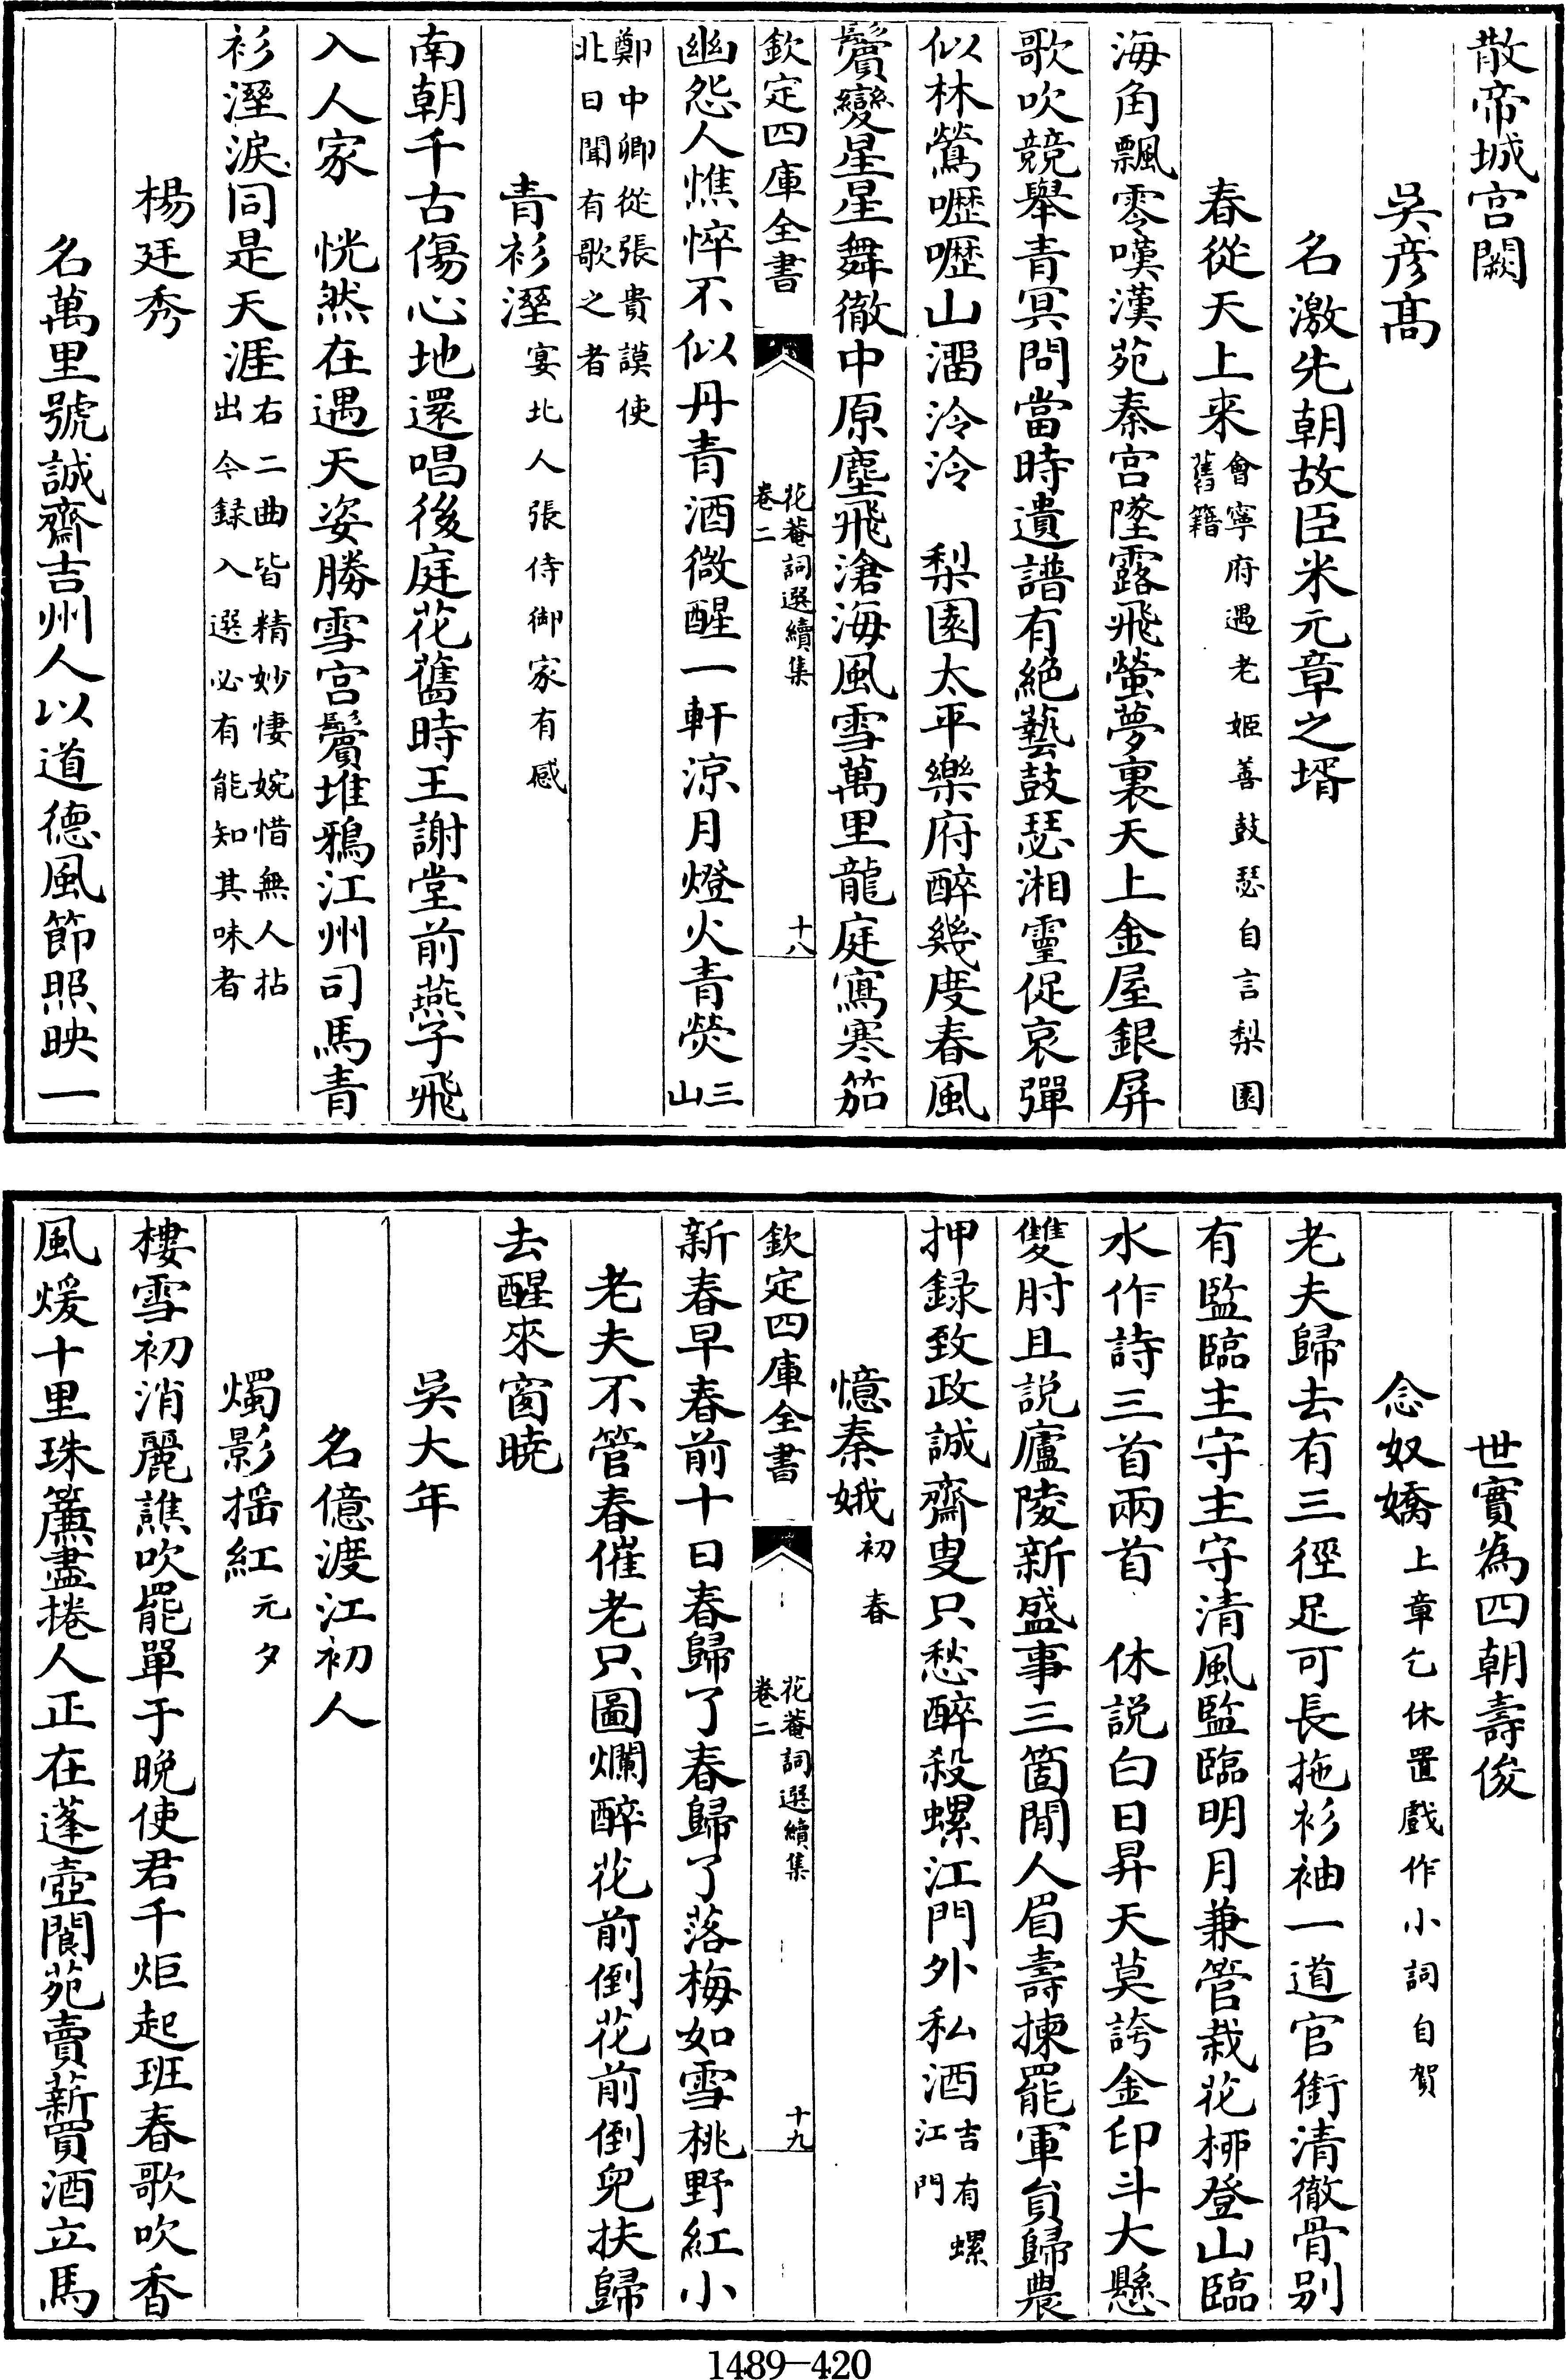 散帝城宫闕
吳彦髙
名激先朝故臣米元章之壻
春從天上来會寧府遇老姬善鼓瑟自言梨園
舊籍
海角飄零嘆漢苑秦宫墜露飛螢夢裏天上金屋銀屏
歌吹競舉青冥問當時遺譜有絶藝鼓瑟湘靈促哀彈
似林鶯嚦嚦山溜泠泠　梨園太平樂府醉幾度春風
鬢變星星舞徹中原塵飛滄海風雪萬里龍庭寫寒笳
欽定四庫全書
花菴詞選續集
卷二
十八
幽怨人憔悴不似丹青酒微醒一軒涼月燈火青熒三
山
鄭中卿從張貴謨使
北日聞有歌之者
青衫溼宴北人張侍御家有感
南朝千古傷心地還唱後庭花舊時王謝堂前燕子飛
入人家　恍然在遇天姿勝雪宫鬢堆鴉江州司馬青
衫溼淚同是天涯右二曲皆精妙悽婉惜無人拈
出今録入選必有能知其味者
楊廷秀
名萬里號誠齋吉州人以道德風節照映一
世實為四朝壽俊
念奴嬌上章乞休置戲作小詞自賀
老夫歸去有三徑足可長拖衫袖一道官銜清徹骨别
有監臨主守主守清風監臨明月兼管栽花栁登山臨
水作詩三首兩首　休説白日昇天莫誇金印斗大懸
雙肘且説廬陵新盛事三箇閒人眉壽揀罷軍貟歸農
押録致政誠齋叟只愁醉殺螺江門外私酒吉有螺
江門
憶秦娥初春
欽定四庫全書
花菴詞選續集
卷二
十九
新春早春前十日春歸了春歸了落梅如雪桃野紅小
老夫不管春催老只圖爛醉花前倒花前倒兒扶歸
去醒來窗曉
吳大年
名億渡江初人
燭影揺紅元夕
樓雪初消麗譙吹罷單于晚使君千炬起班春歌吹香
風煖十里珠簾盡捲人正在蓬壺閬苑賣薪買酒立馬
1489—420